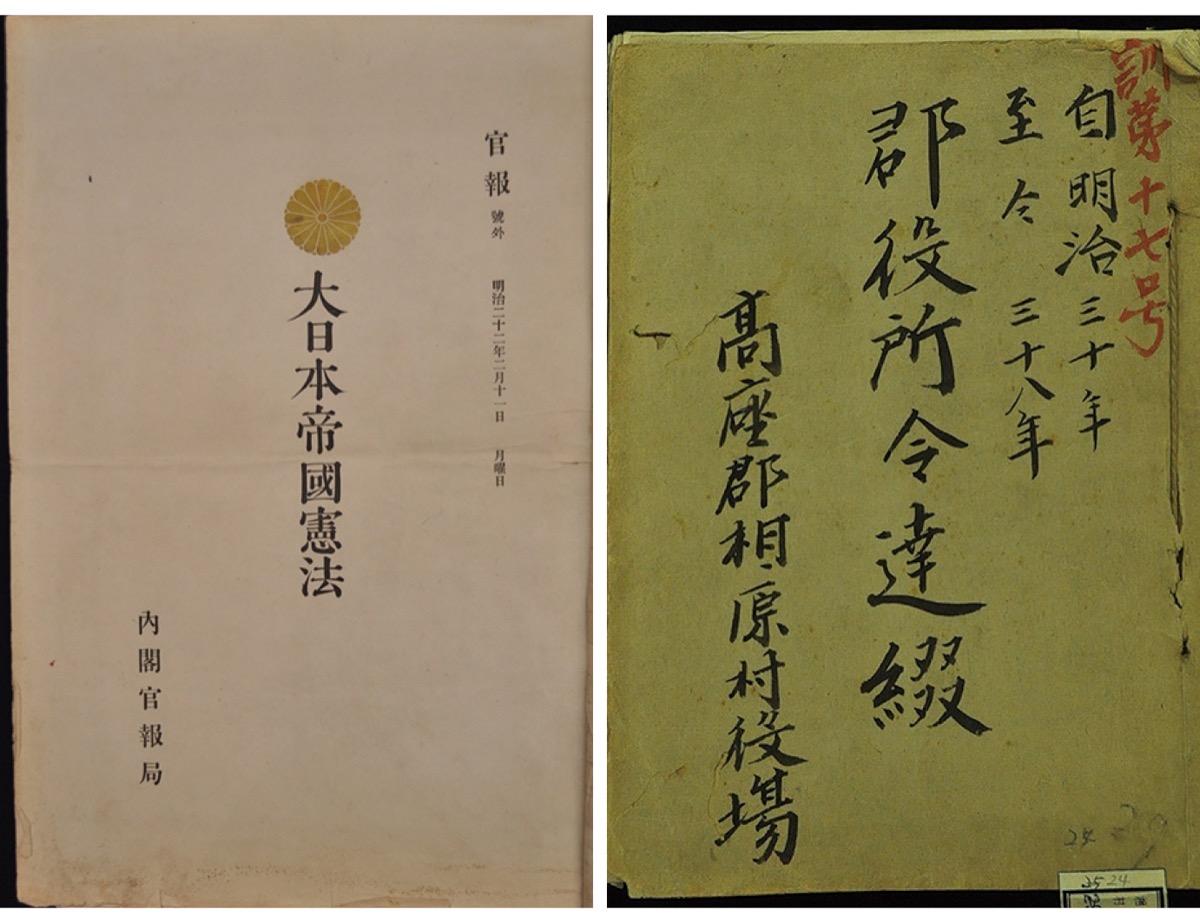 官報 號外 明治二十二年二月十一日 月曜日
大日本帝國憲法
內閣官報局
訓第十七号
自明治三十年
至令三十八年
郡役所令達綴
高座郡相原村役場
24
3524